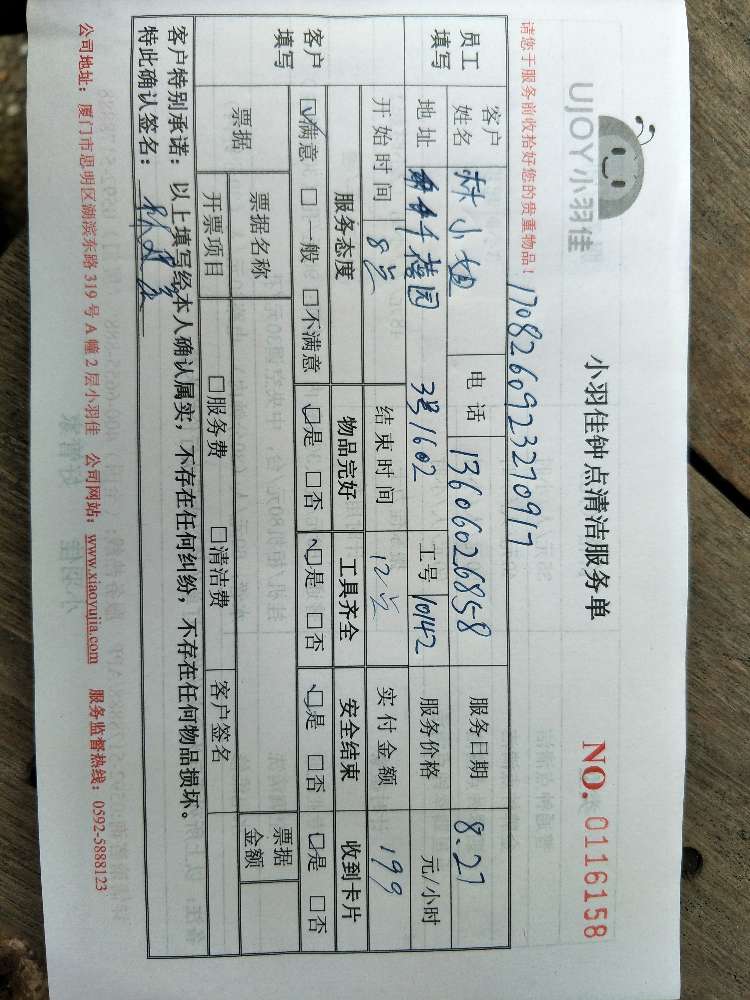 UJOY小羽佳
小羽佳钟点清洁服务单
NO. 0116158
请您于服务前收拾好您的贵重物品！
170826092327091 7
员工填写
客户姓名 林小姐 电话 13606026858 服务日期 8.27
地址 花园 3号1602 工号 10142 服务价格 元/小时
开始时间 8点 结束时间 12点 实付金额 199
客户填写
服务态度 物品完好 工具齐全 安全结束 收到卡片
☑满意 □一般 □不满意 ☑是 □否 ☑是 □否 ☑是 □否 ☑是 □否
票据 票据名称 票据金额
开票项目 □服务费 □清洁费 客户签名
客户特别承诺：以上填写经本人确认属实，不存在任何纠纷，不存在任何物品损坏。
特此确认签名：
公司地址：厦门市思明区湖滨东路319号A幢2层小羽佳 公司网站：www.xiaoyujia.com 服务监督热线：0592-5888123